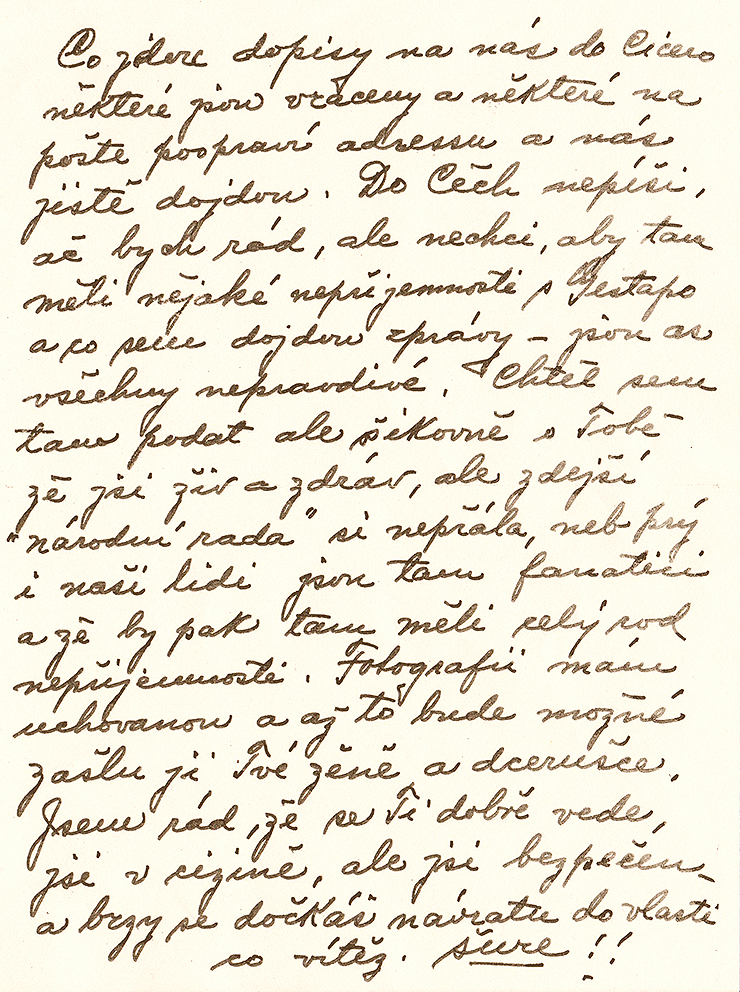 Co jdou dopisy na nás do Cicero
některé jsou vráceny a některé na
pošte poopraví adressu a nás
jistě dojdou. Do Čěch nepíši,
ač bych rád, ale nechci, aby tam
měli nějaké nepříjemnosti s Gestapo
a co sem dojdou zprávy – jsou as
všechny nepravdivé. Chtěl sem
tam podat ale šikovně o Tobě
zě jsi živ a zdráv, ale zdejší
"národní rada" si nepřála, neb prý
i naši lidi jsou tam fanatici
a zě by pak tam měli celý rod
nepříjemnosti. Fotografii mám
uchovanou a až to bude možné
zašlu ji Tvé zěně a dcerušce.
Jsem rád, zě se Ti dobře vede,
jsi v cizině, ale jsi bezpečen
a brzy se dočkáš návratu do vlasti
co vítěz. šure!!